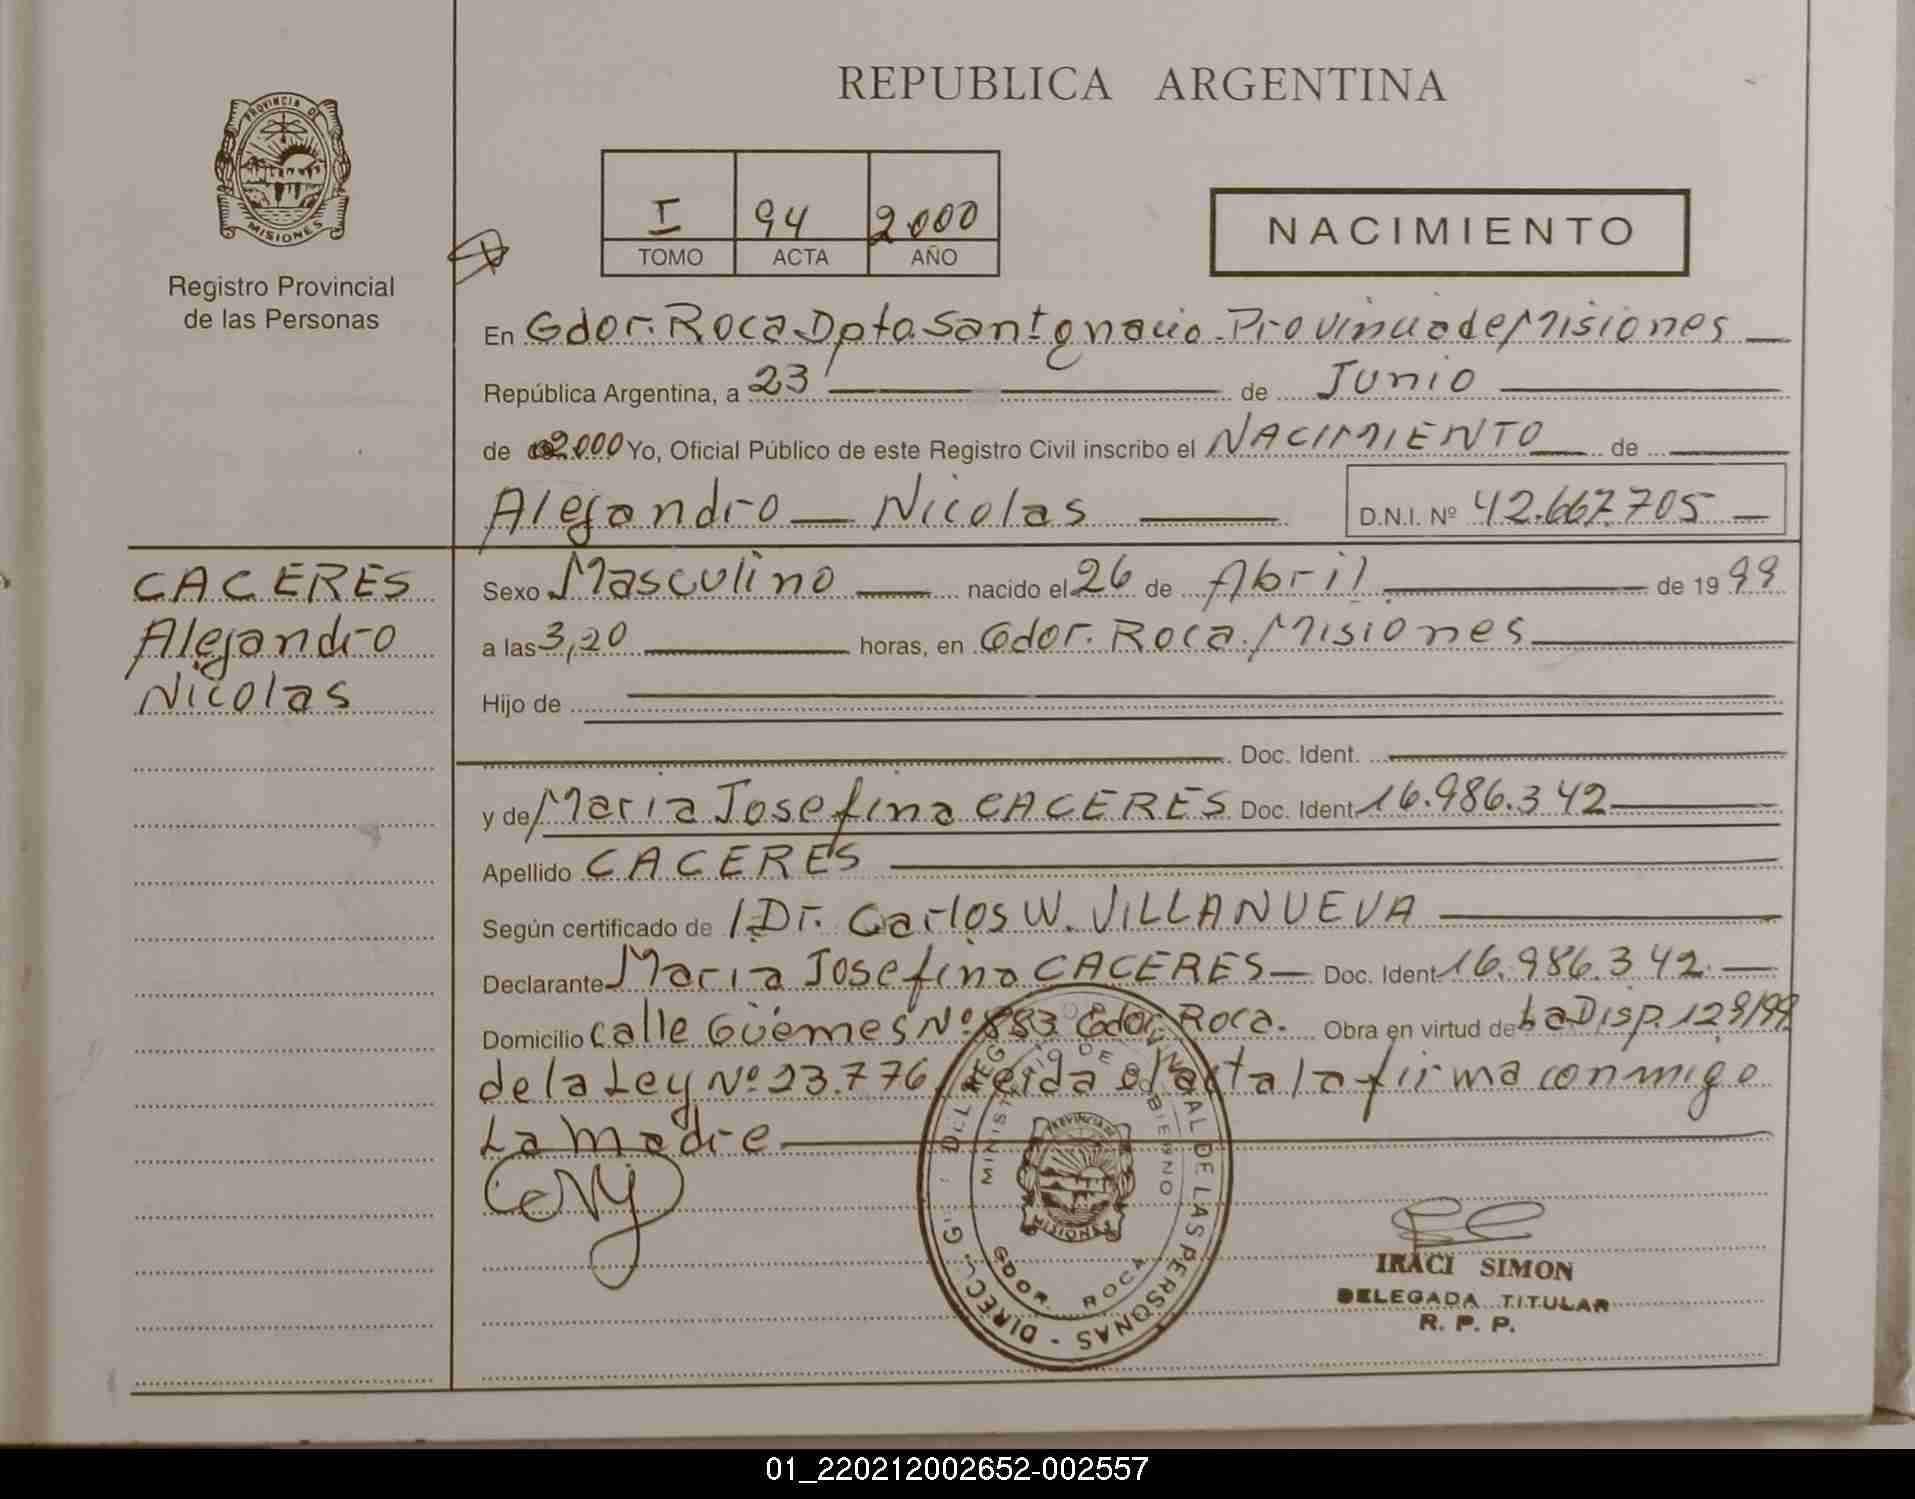 REPUBLICA ARGENTINA
PROVINCIA DE
MISIONES
Registro Provincial
de las Personas
I 94 2000
TOMO ACTA AÑO
NACIMIENTO
En Gdor. Roca Dpto San Ignacio. Provincia de Misiones
República Argentina, a 23 de Junio
de 2000 Yo, Oficial Público de este Registro Civil inscribo el NACIMIENTO de
Alejandro Nicolas D.N.I. Nº 42.667.705
CACERES
Alejandro
Nicolas
Sexo Masculino nacido el 26 de Abril de 1999
a las 3,20 horas, en Gdor. Roca. Misiones
Hijo de
Doc. Ident.
y de Maria Josefina CACERES Doc. Ident. 16.986.342
Apellido CACERES
Según certificado de Dr. Carlos W. VILLANUEVA
Declarante Maria Josefina CACERES Doc. Ident. 16.986.342
Domicilio calle Güemes Nº 883 Gdor. Roca. Obra en virtud de La Disp. 129/99
de la Ley Nº 23.776, leida el acta la firma conmigo
La madre
DEL REG. PROVINCIAL DE LAS PERSONAS - DIRECC. G
MINISTERIO DE GOBIERNO
PROVINCIA DE
MISIONES
GDOR. ROCA
IRACI SIMON
DELEGADA TITULAR
R. P. P.
01_220212002652-002557